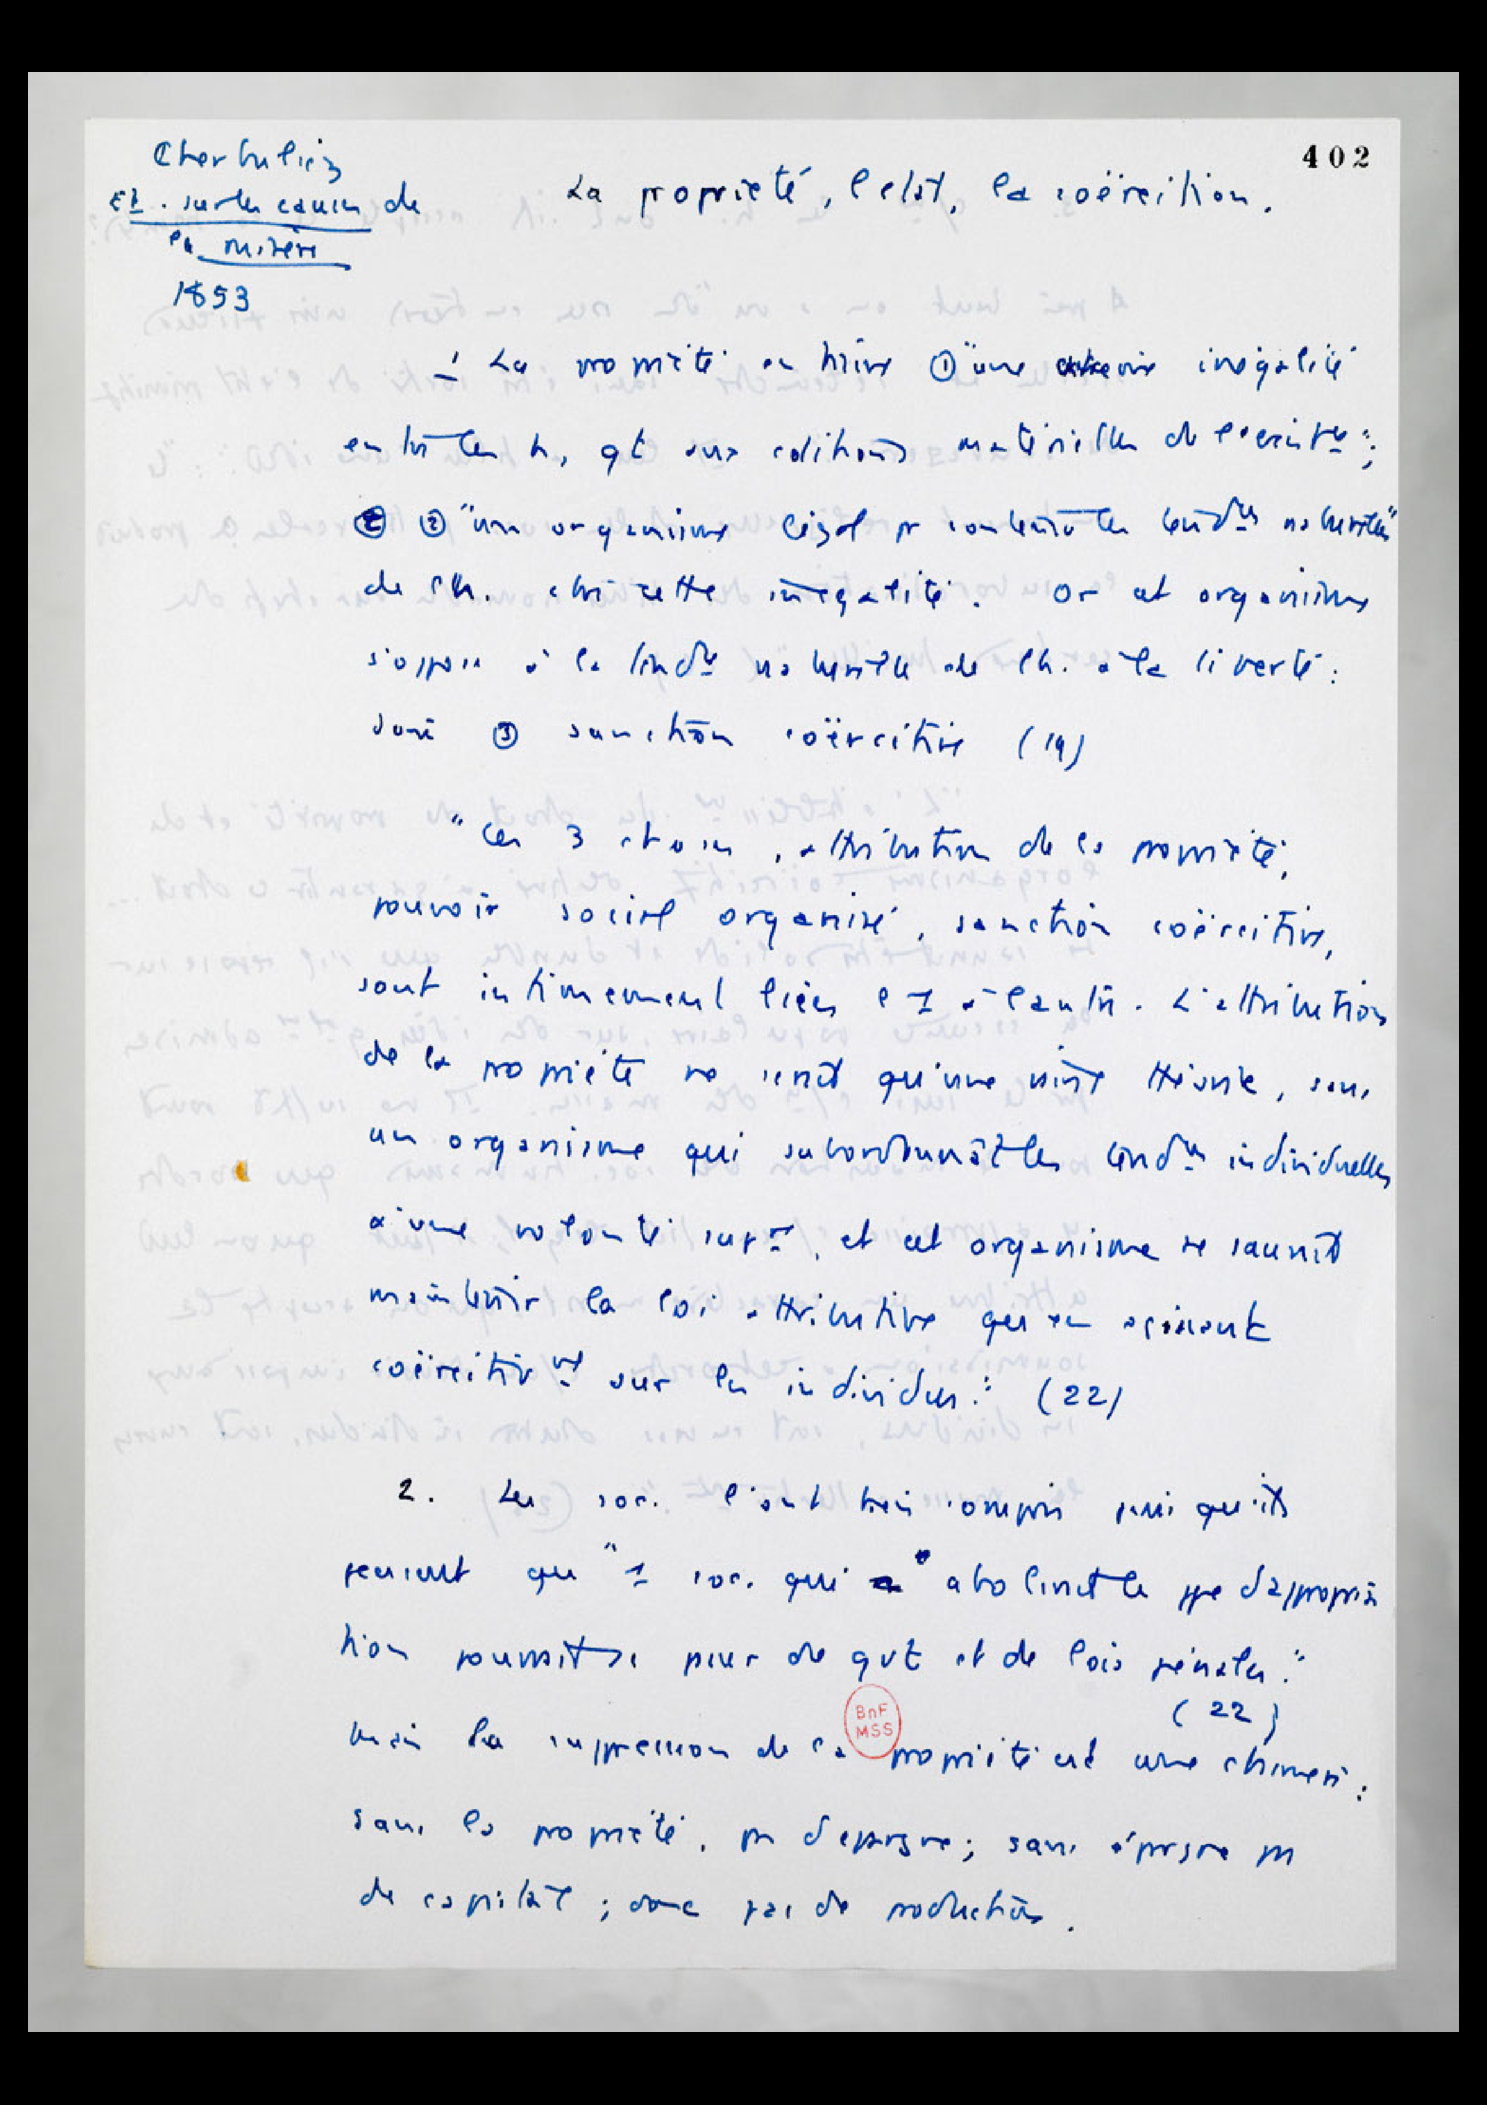 402
Cherbuliez
Et. sur les causes de
la misère
1853
La propriété, l'état, la coërcition.
1 La propriété entraîne ① "une inégalité
entre les h, qt aux conditions matérielles de l'existce";
② "un organisme légal pr contenir les tendces naturelles"
de l'h. chez cette inégalité. Or cet organisme
s'oppose à la tendce naturelle de l'h. à la liberté :
d'où ③ sanction coërcitive (19)
"Ces 3 choses, attribution de la propriété,
pouvoir social organisé, sanction coërcitive,
sont intimement liées l'1 à l'autre. L'attribution
de la propriété ne serait qu'une vaine théorie, sans
un organisme qui subordonnât les tendces individuelles
à une volonté supre, et cet organisme ne saurait
maintenir la loi attributive qu'en agissant
coërcitivmt sur les individus." (22)
2. Les soc. l'ont bien compris puisqu'ils
pensent que "1 soc. qui abolirait le ppe d'appropria
tion pourrait se passer de gvt et de lois pénales."
(22)
Mais la suppression de la propriété est une chimère :
BnF
MSS
sans la propriété, pas d'épargne; sans épargne pas
de capital ; donc pas de production.